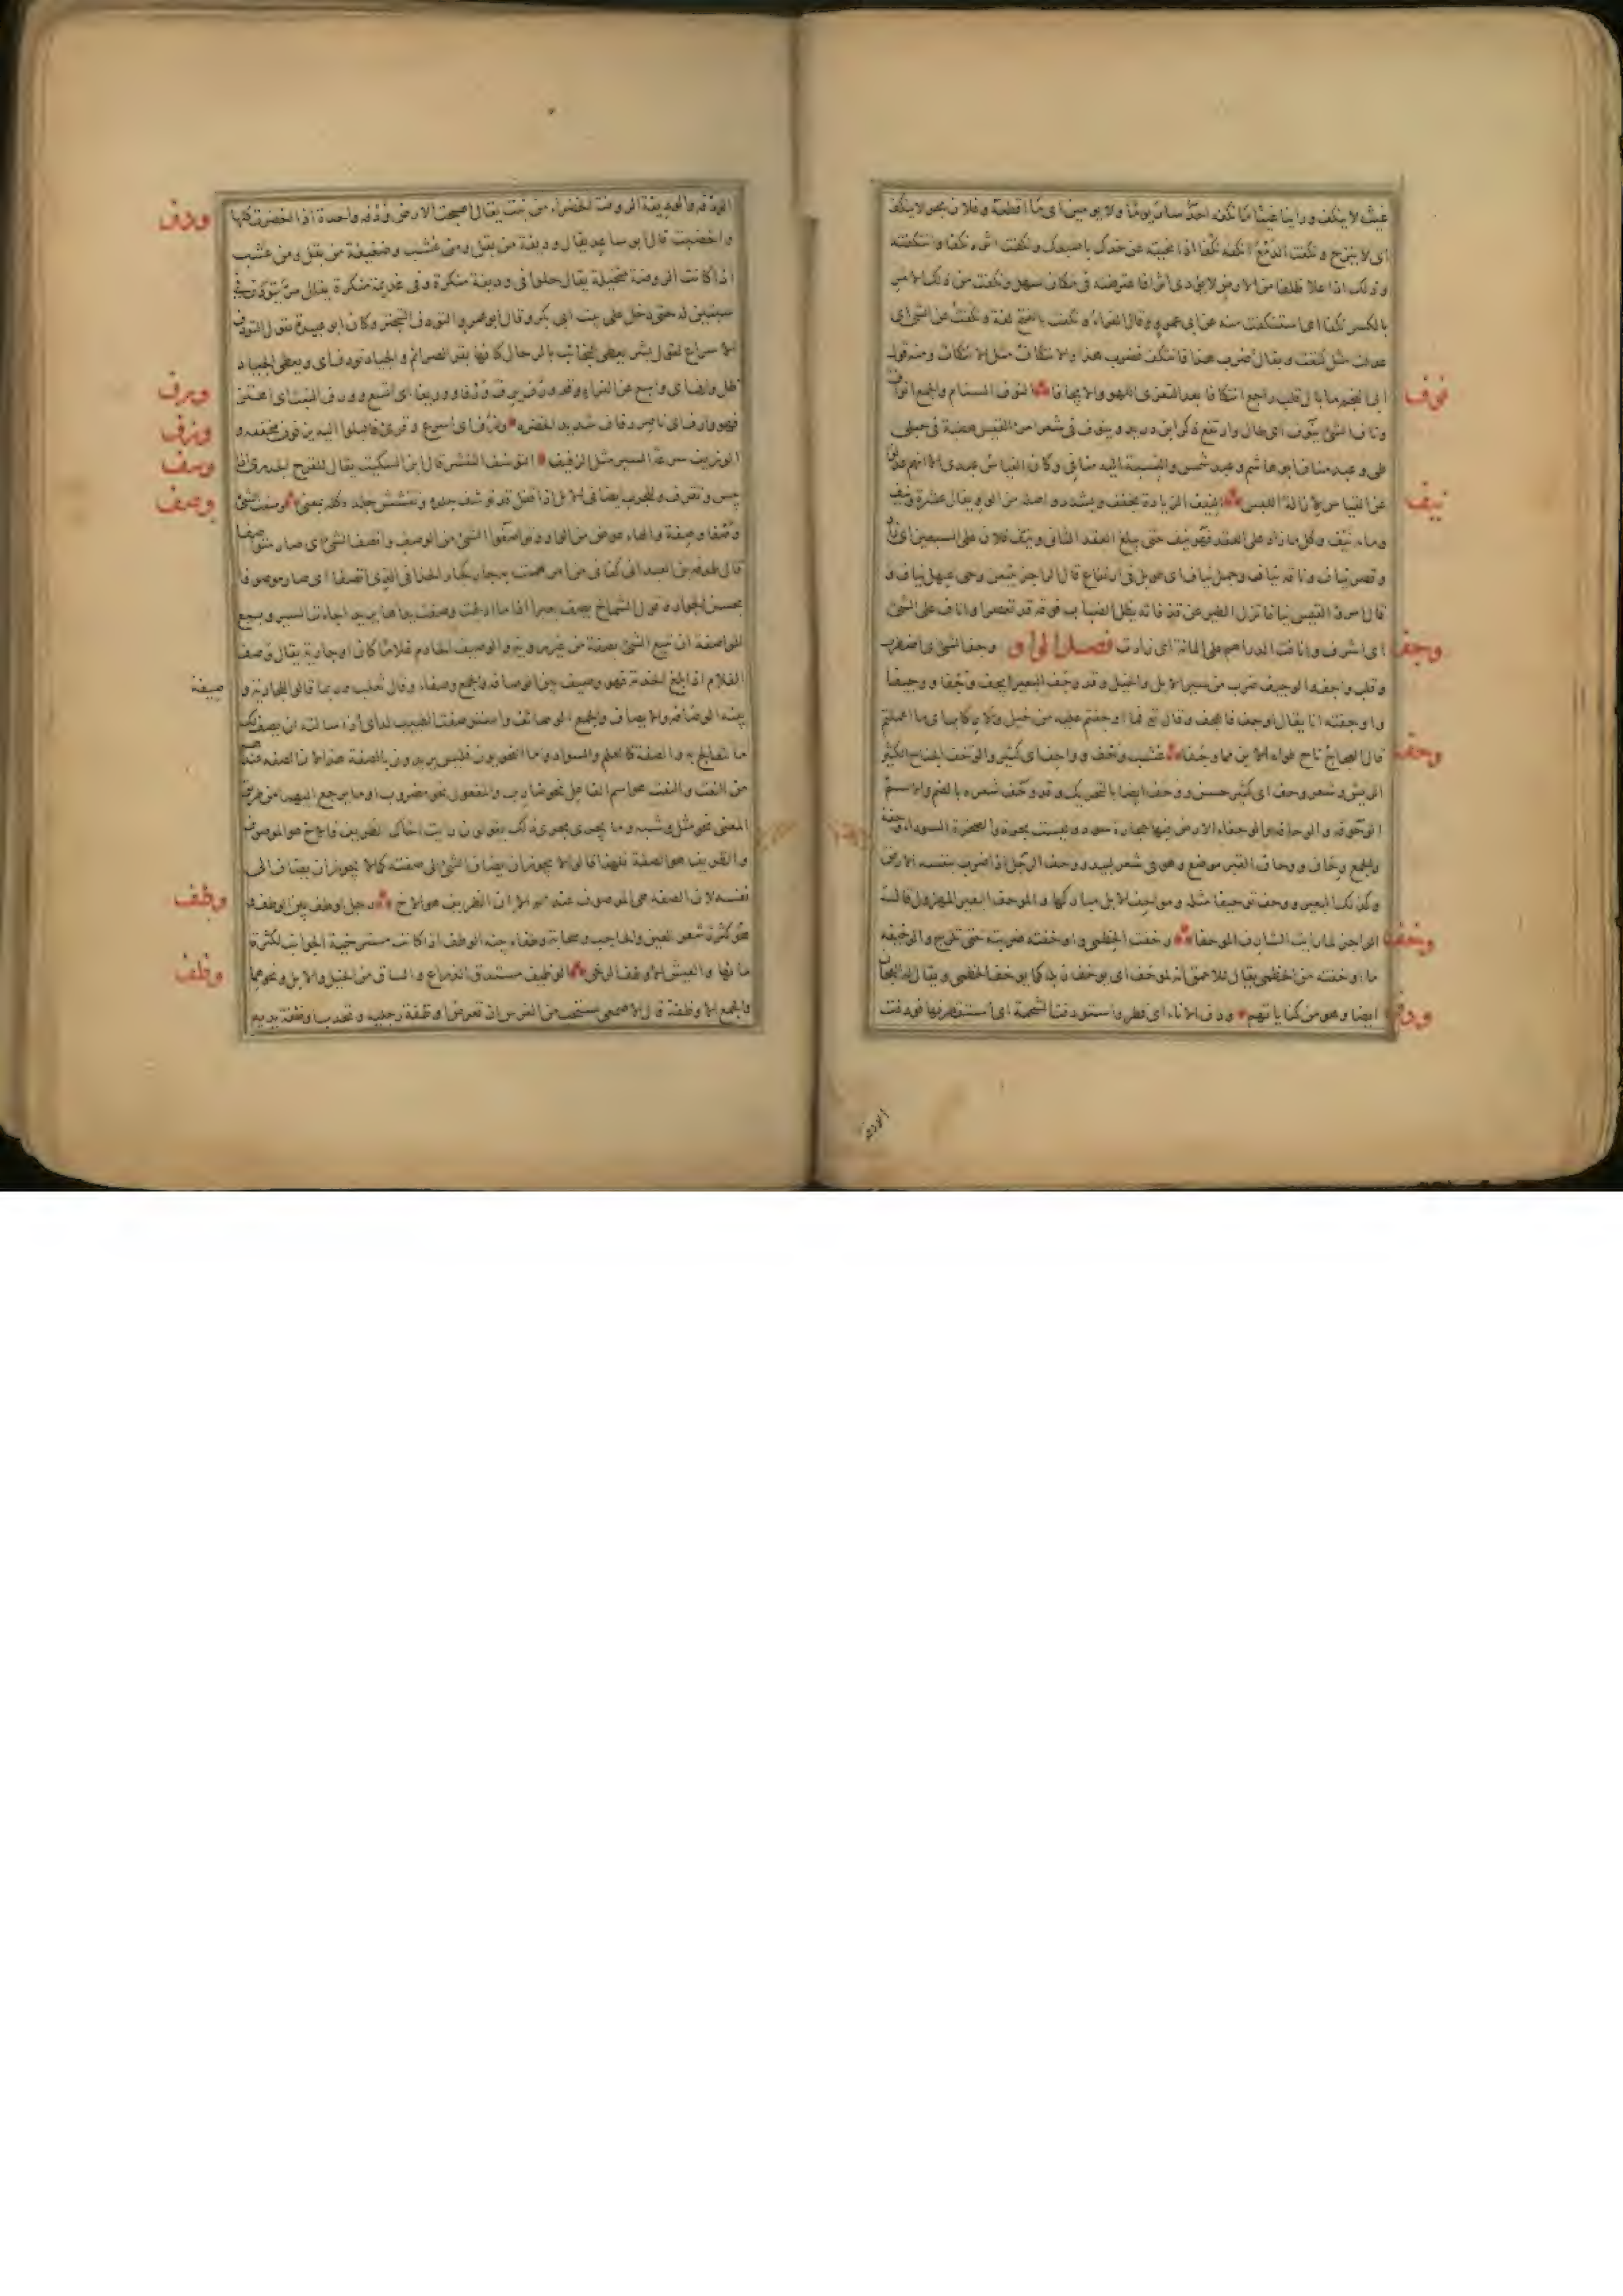 غيث لا ينكف ورأينا غيثا ما نكفه احد سار يوما ولا يومين اى ما اقطعه وفلان بحر لا ينكف
اى لا ينزح ونكفت الدمع انكفه نكفا اذا نحيته عن خدك باصبعك ونكفت اثره نكفا وانتكفته
وذلك اذا علا ظلفا من الارض لا يؤدى اثرا فاعترضته فى مكان سهل ونكفت من ذلك الامر
بالكسر نكفا اى استنكفت منه عن ابى عمرو وقال الفراء ونكفت بالفتح لغة ونكفت عن الشئ اى
عدلت مثل كنفت ويقال ضرب هذا فانتكف فضرب هذا والانتكاف مثل الانتكاث ومنه قول
نوف
ابى النجم ما بال قلب راجع انتكافا بعد التعزى اللهو والايجافا النوف السنام والجمع انواف
وناف الشئ ينوف اى طال وارتفع ذكره ابن دريد وينوف فى شعر امرئ القيس هضبة فى جبلى
طى وعبد مناف ابو هاشم وعبد شمس والنسبة اليه منافى وكان القياس عبدى الا انهم عدلوا
نيف
عن القياس لازالة اللبس النيف الزيادة يخفف ويشدد واصله من الواو يقال عشرة ونيف
ومائة ونيف وكل ما زاد على العقد فهو نيف حتى يبلغ العقد الثانى ونيف فلان على السبعين اى زاد
وقصر نياف وناقة نياف وجمل نياف اى طويل فى ارتفاع قال الراجز يتبعن وخى عيهل نياف و
قال امرؤ القيس نيافا تزل الطير عن قذفاته يظل الضباب فوقه قد تعصرا واناف على الشئ
وجف
اى اشرف وانافت الدراهم على المائة اى زادت فصل الواو وجف الشئ اى اضطرب
وقلب واجف والوجيف ضرب من سير الابل والخيل وقد وجف البعير يجف وجفا ووجيفا
واوجفته انا يقال اوجف فاعجف وقال تع فما اوجفتم عليه من خيل ولا ركاب اى ما اعملتم
وحف
قال العجاج ناج طواه الاين مما وجفا عشب وحف وواحف اى كثير والوحف الجناح الكثير
الريش وشعر وحف اى كثير حسن ووحف ايضا بالتحريك وقد وحف شعره بالضم والاسم
الوحوفة والوحافة والوحفاء الارض فيها حجارة سود وليست بحرة والصخرة السوداء وحفة
والجمع وحاف ووحاف القهر موضع وهو فى شعر لبيد ووحف الرجل اذا ضرب بنفسه الارض
وكذلك البعير ووحف توحيفا مثله ومواحف الابل مباركها والموحف البعير المهزول قال
وخف
الراجز لما رايت الشارف الموحفا وخفت الخطمى واوخفته ضربته حتى تلزج والوخيفة
ما اوخفته من الخطمى يقال للاحمق انه لموخف اى يوخف زبله كما يوخف الخطمى ويقال له العجان
ودف
ايضا وهو من كناياتهم ودف الاناء اى قطر واستودفت الشحمة اى استقطرتها فودفت
الودفة
ودف
الودفة والوديفة الروضة الخضراء من نبت يقال اصبحت الارض ودفة واحدة اذا اخضرت كلها
واخصبت قال ابو صاعد يقال وديفة من بقل ومن عشب وضغيفة من بقل ومن عشب
اذا كانت الروضة متخيلة يقال حلوا فى وديفة منكرة وفى غذيمة منكرة
الاسراع لقول بشر يعطى النجائب بالرحال كانها بقر الصرائم والجياد توذف اى ويعطى الجياد
ورف
ظل وارف اى واسع عن الفراء وقد ورف يرف ورفا ووريفا اى اتسع وورف النبت اى اهتز
وزف
فهو وارف اى ناضر رفاف شديد الخضرة وزف اى اسرع وقرئ فاقبلوا اليه يزفون مخففة و
وسف
الوزيف سرعة السير مثل الزفيف التوسف التقشر قال ابن السكيت يقال للقرح والجدرى اذا
وصف
يبس وتقرف وللجرب ايضا فى الابل اذا قفل قد توسف جلده وتقشقش جلده كله بمعنى وصفت الشئ
وصفا وصفة والهاء عوض من الواو وتواصفوا الشئ من الوصف واتصف الشئ اى صار متواصفا
قال طرفة بن العبد انى كفانى من امر هممت به جار كجار الحذاقى الذى اتصفا اى صار موصوفا
بحسن الجوار وقول الشماخ يصف بعيرا اذا ما ادلجت وصفت يداها يريد اجادت السير وبيع
المواصفة ان تبيع الشئ بصفة من غير رؤية والوصيف الخادم غلاما كان او جارية يقال وصف
الغلام اذا بلغ الخدمة فهو وصيف بين الوصافة والجمع وصفاء وقال ثعلب وربما قالوا للجارية و
صيفة
بينة الوصافة والايصاف والجمع الوصائف واستوصفت الطبيب لدائى اذا سالته ان يصف لك
ما تتعالج به والصفة كالعلم والسواد واما النحويون فليس يريدون بالصفة هذا لان الصفة عندهم
هى النعت والنعت هو اسم الفاعل نحو ضارب والمفعول نحو مضروب او ما يرجع اليهما من طريق
المعنى نحو مثل وشبه وما يجرى مجرى ذلك يقولون رايت اخاك الظريف فالاخ هو الموصوف
والظريف هو الصفة فلهذا قالوا لا يجوز ان يضاف الشئ الى صفته كما لا يجوز ان يضاف الى
وطف
نفسه لان الصفة هى الموصوف عنده الا ان الظريف هو الاخ رجل اوطف بين الوطف و
هو كثرة شعر العين والحاجب وسحابة وطفاء بينة الوطف اذا كانت مسترخية الجوانب لكثرة
وظف
مائها والعيش الاوطف الرخى الوظيف مستدق الذراع والساق من الخيل والابل ونحوهما
والجمع الاوظفة قال الاصمعى يستحب من الفرس ان تعرض اوظفة رجليه وتحدب اوظفة يديه